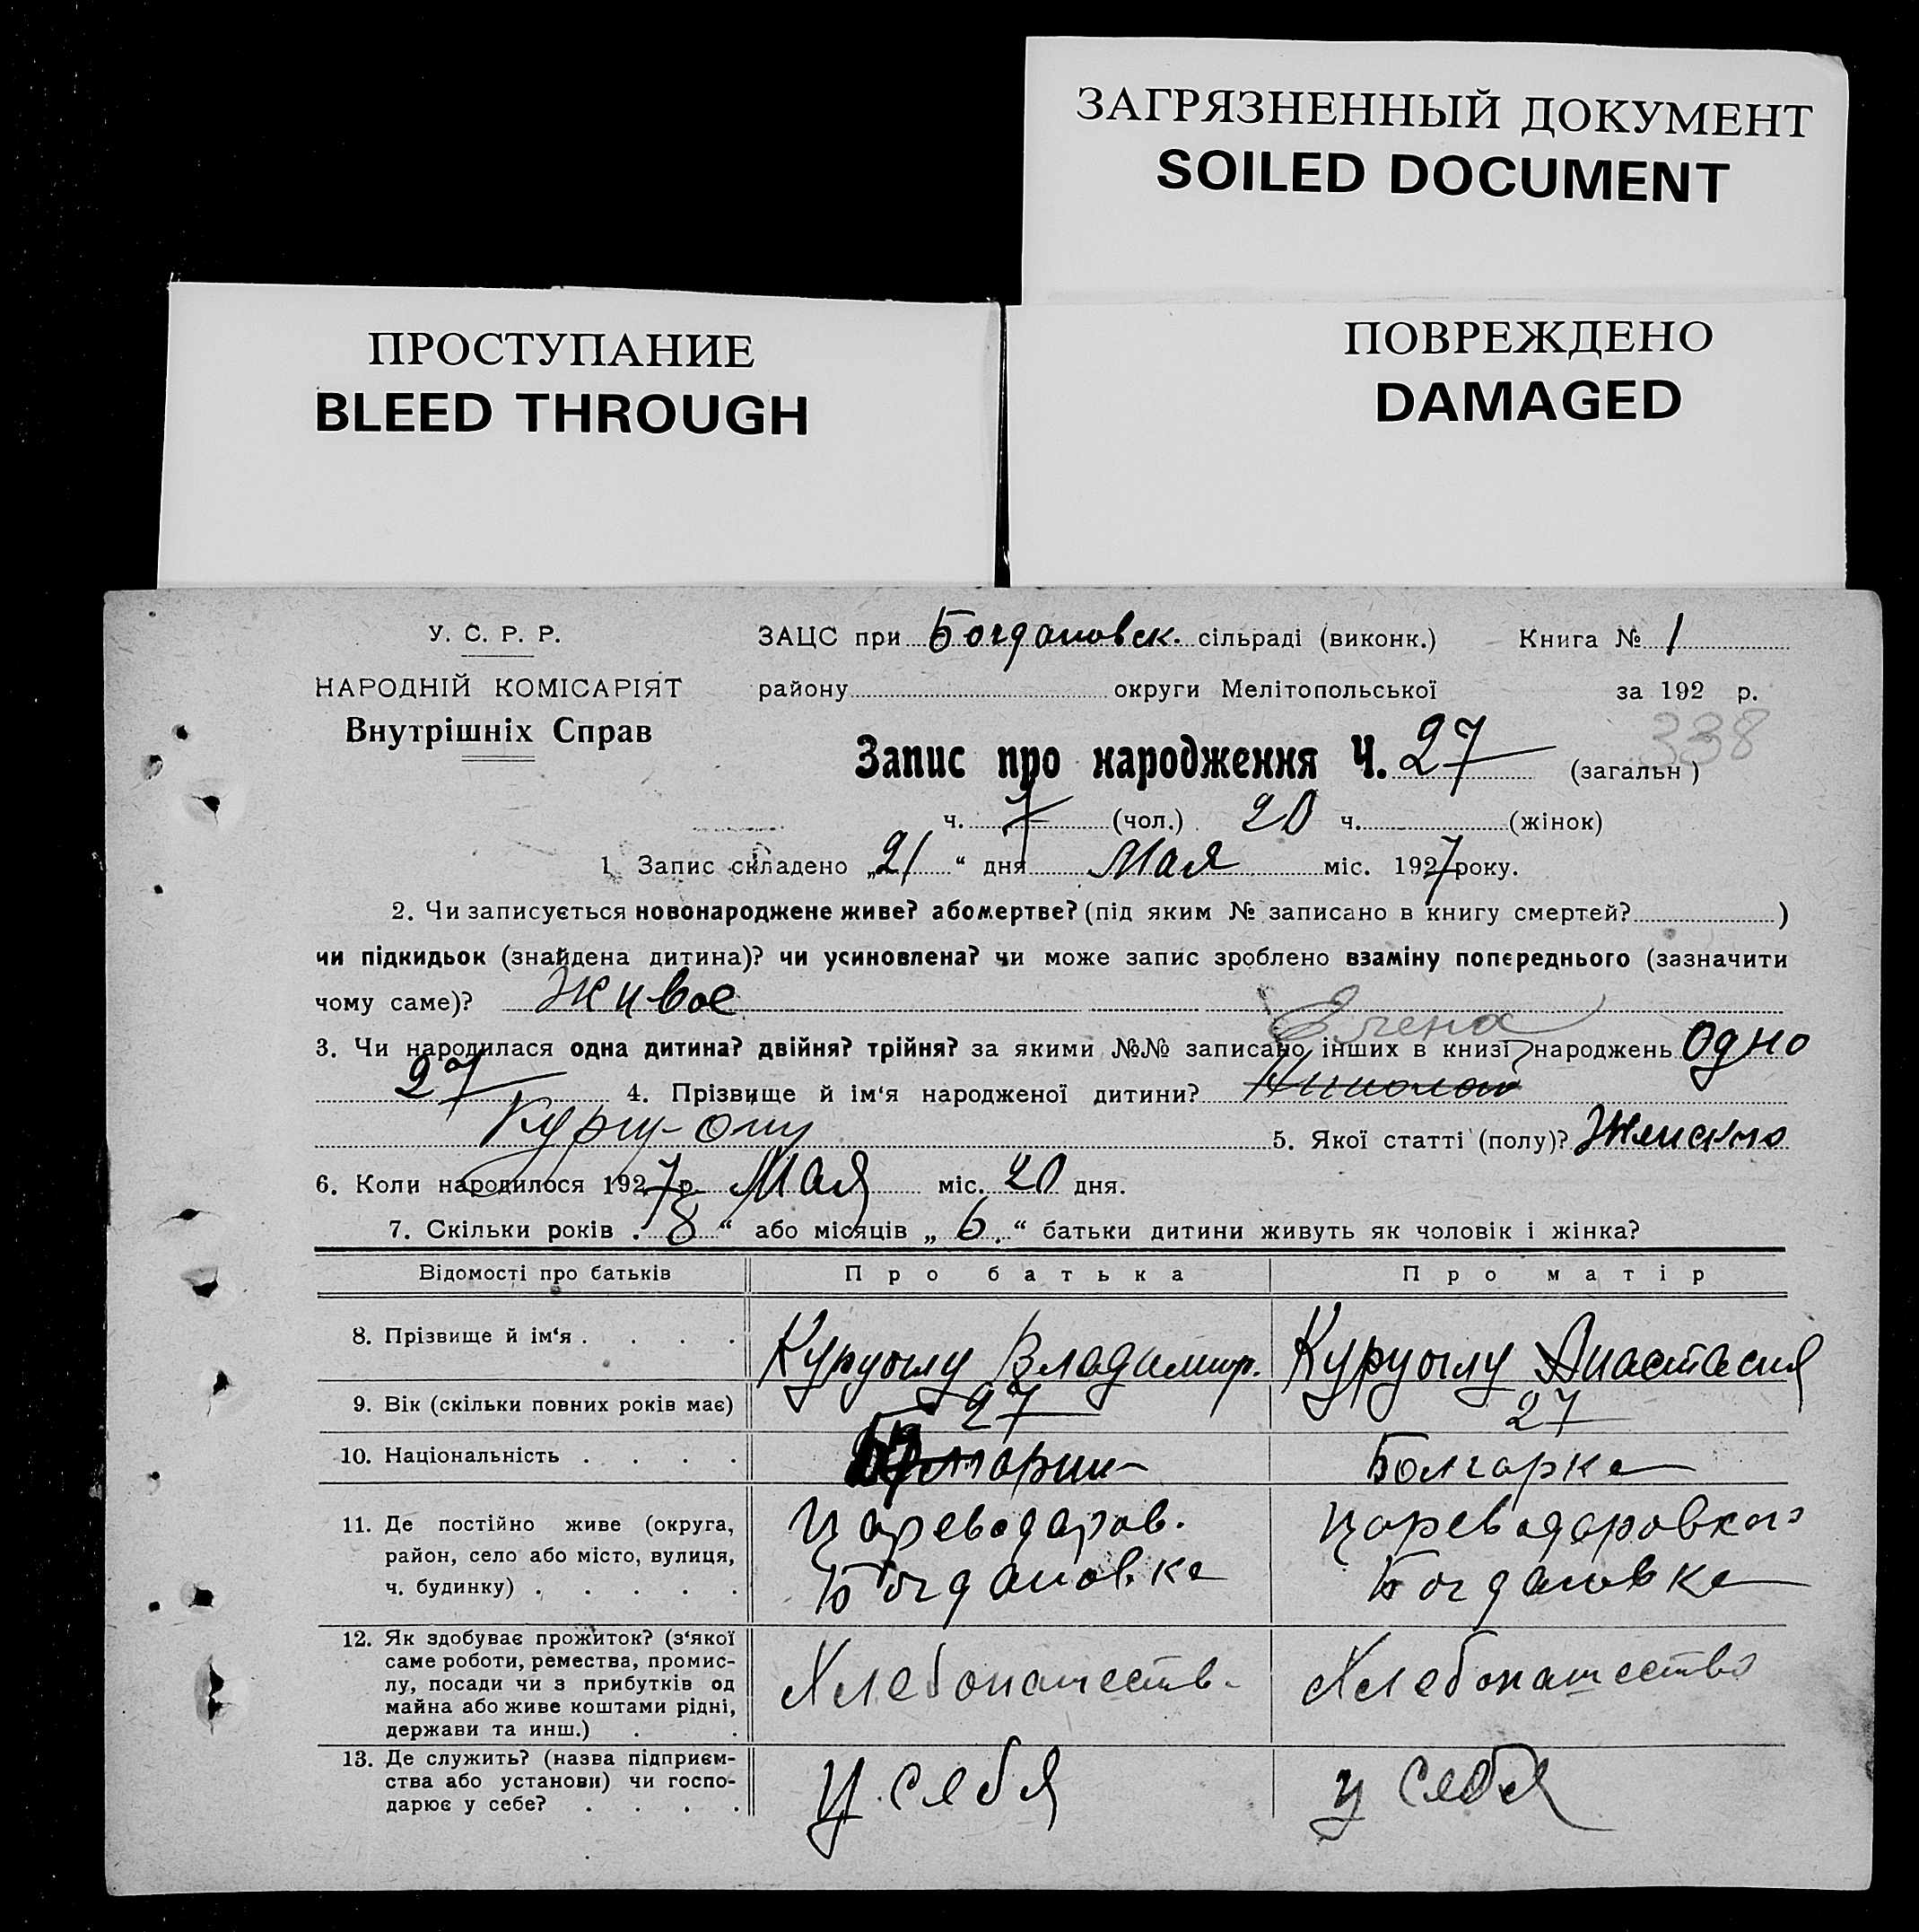 ЗАГРЯЗНЕННЫЙ ДОКУМЕНТ
SOILED DOCUMENT
ПРОСТУПАНИЕ
BLEED THROUGH
ПОВРЕЖДЕНО
DAMAGED
У. С. Р. Р.
НАРОДНІЙ КОМІСАРІЯТ
Внутрішніх Справ
ЗАЦС при Богдановск. сільраді (виконк.) Книга № 1
району округи Мелітопольської за 192 р.
338
Запис про народження Ч. 27 (загальн)
ч. 7 (чол.) 20 ч. (жінок)
1. Запис складено „21“ дня Мая міс. 1927 року.
2. Чи записується новонароджене живе? або мертве? (під яким № записано в книгу смертей? )
чи підкидьок (знайдена дитина)? чи усиновлена? чи може запис зроблено взаміну попереднього (зазначити
чому саме)? Живое
Елена
3. Чи народилася одна дитина? двійня? трійня? за якими №№ записано інших в книзі народжень Одно
27 4. Прізвище й ім‘я народженої дитини?
5. Якої статті (полу)? Женского
6. Коли народилося 1927 р. Мая міс. 20 дня.
7. Скільки років „8“ або місяців „6“ батьки дитини живуть як чоловік і жінка?
Відомості про батьків Про батька Про матір
8. Прізвище й ім‘я . . . . Куруоглу Владимир. Куруоглу Анастасия
9. Вік (скільки повних років має) 27 27
10. Національність . . . . Болгарка
11. Де постійно живе (округа, Цареводаров. Цареводаровкого
район, село або місто, вулиця, Богдановка Богдановка
ч. будинку) . . . . .
12. Як здобуває прожиток? (з‘якої
саме роботи, ремества, промис- Хлебопашеств. Хлебопашество
лу, посади чи з прибутків од
майна або живе коштами рідні,
держави та инш.) . .
13. Де служить? (назва підприєм-
ства або установи) чи госпо- У себя у себя
дарює у себе? . . . .